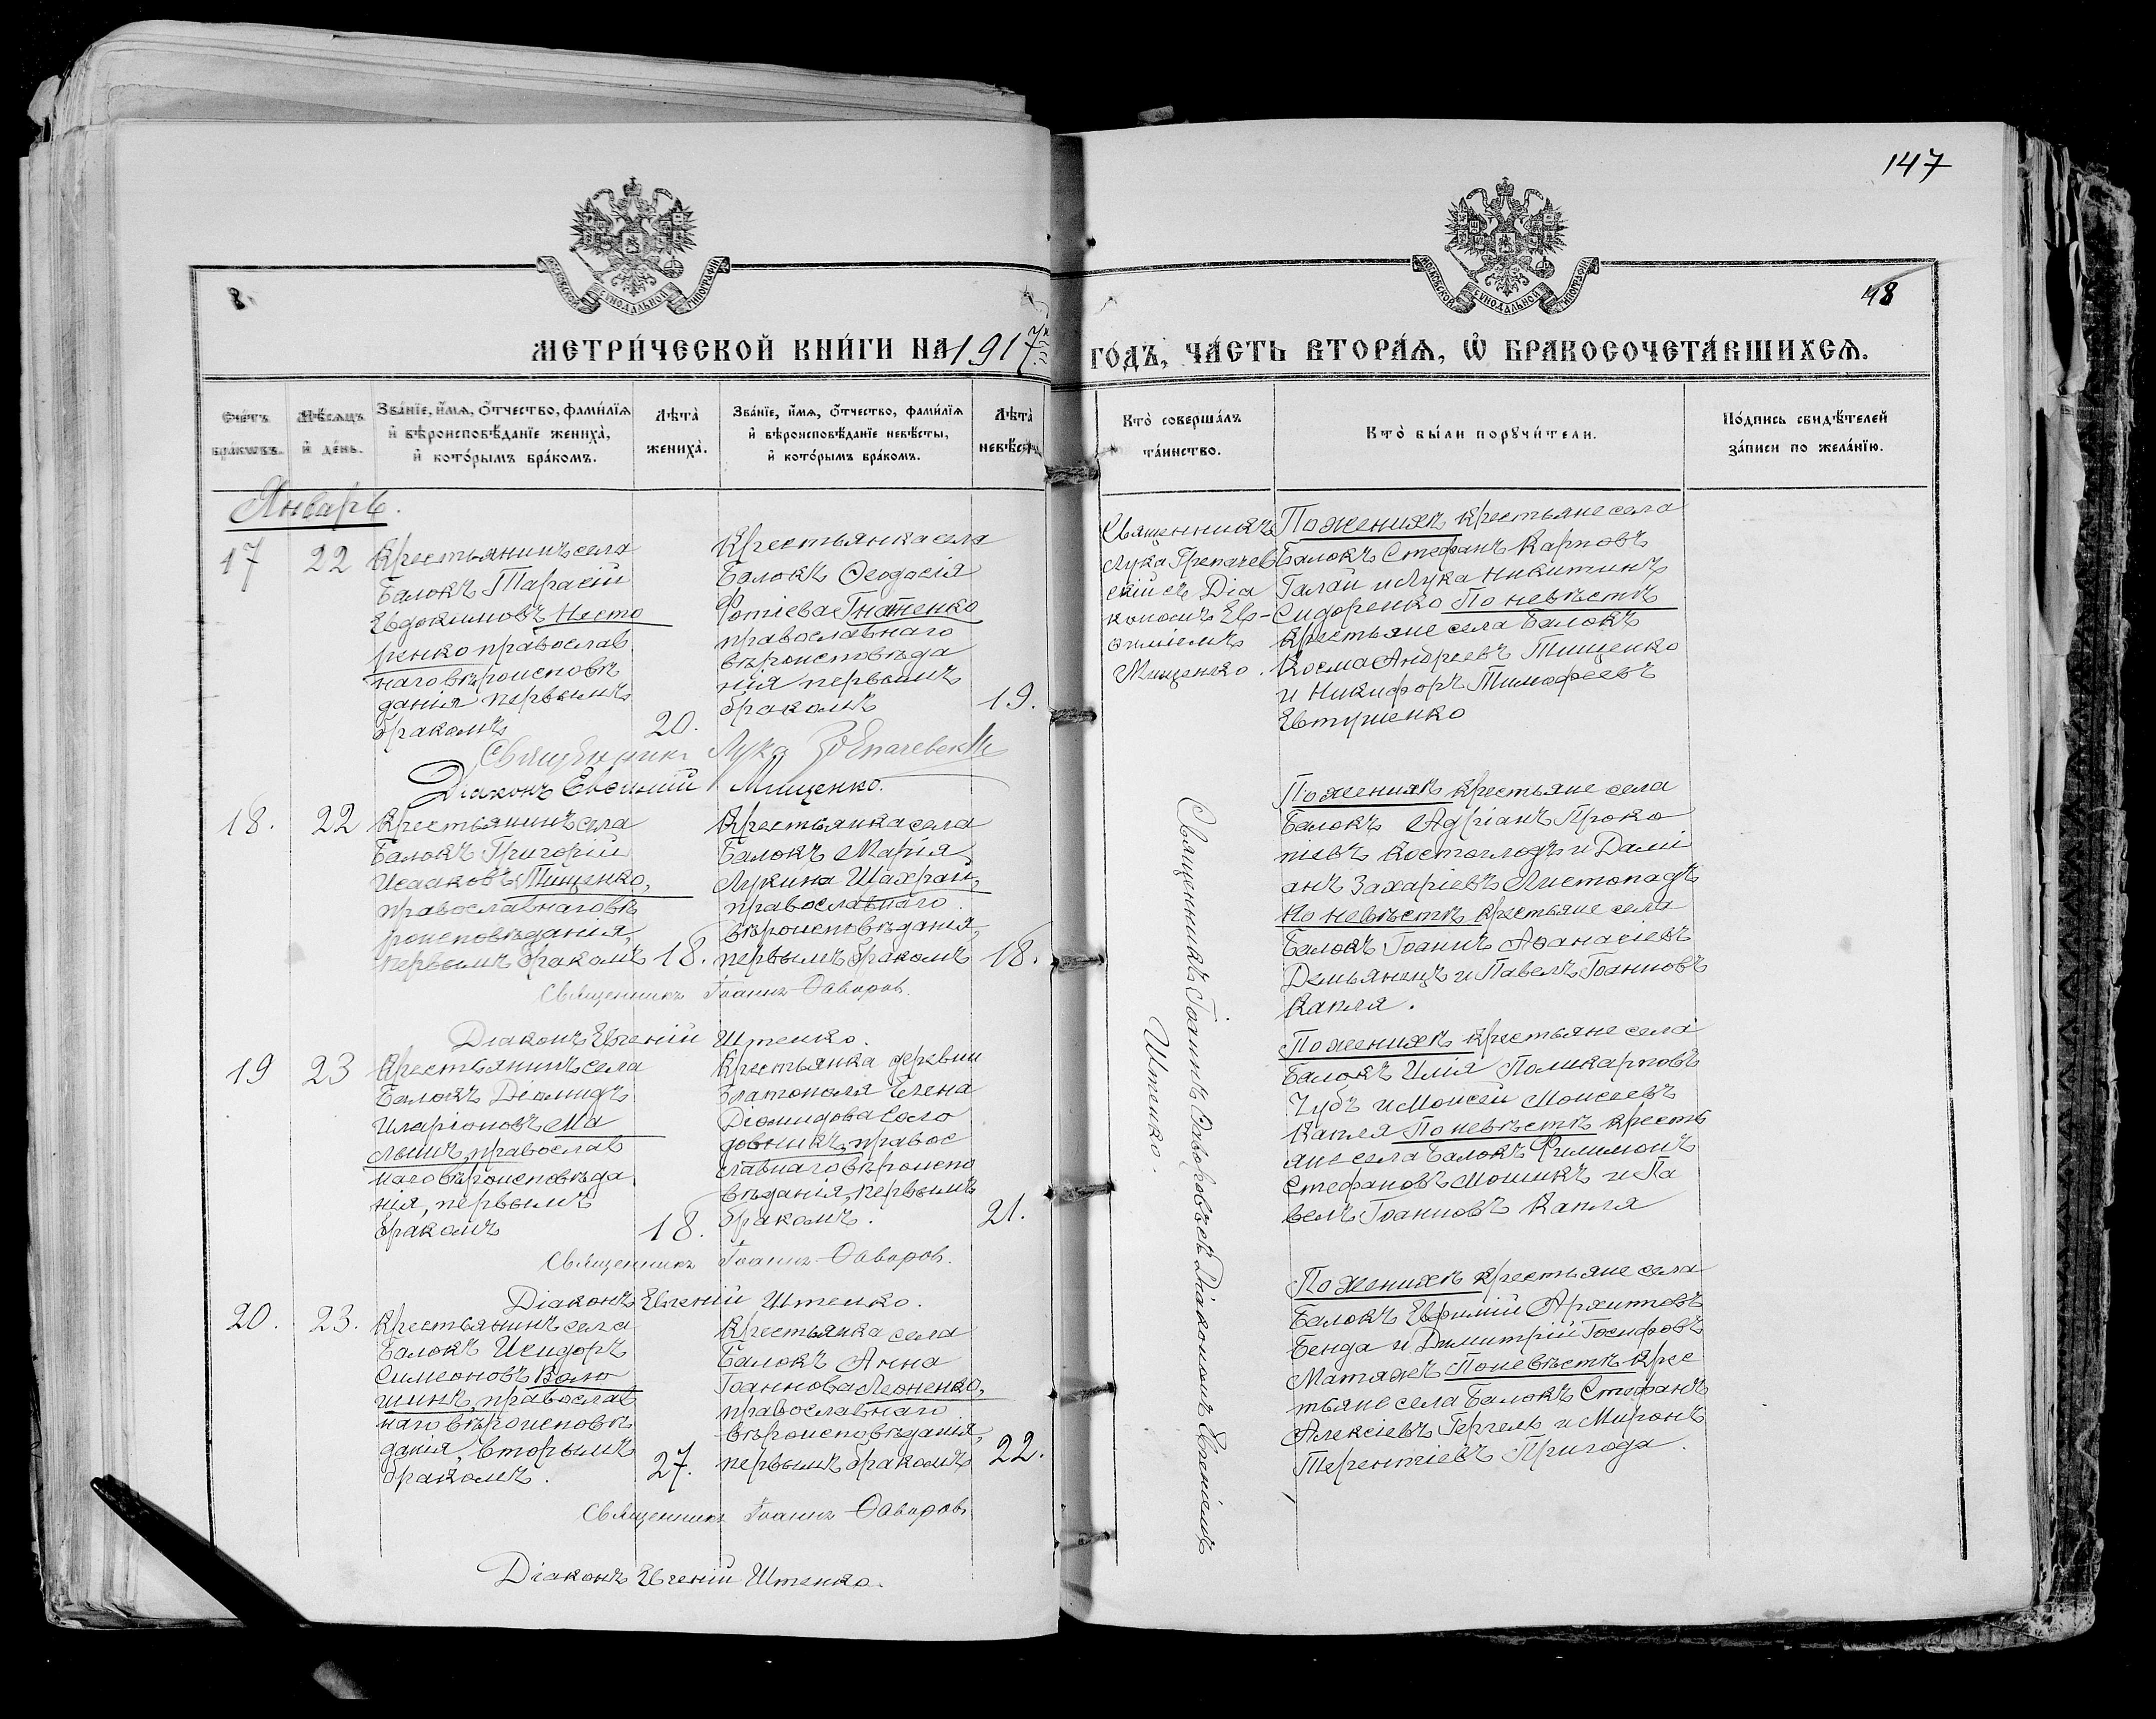 147
8.
48
МОСКОВСКОЙ СѴНОДАЛЬНОЙ ТИПОГРАФІИ
МОСКОВСКОЙ СѴНОДАЛЬНОЙ ТИПОГРАФІИ
МЕТРИ́ЧЕСКОЙ КНИ́ГИ НА 1917 ГО́ДЪ, ЧА́СТЬ ВТОРА́Ѧ, Ѡ҆ БРАКОСОЧЕТА́ВШИХСѦ.
Сче́тъ бра́ковъ.
Мѣ́сяцъ и҆ де́нь.
Зва́нїе, и҆́мѧ, ѻ҆́тчество, фами́лїѧ
и҆ вѣроисповѣ́данїе жениха̀,
и҆ кото́рымъ бра́комъ.
Лѣ́та̀
жениха̀.
Зва́нїе, и҆́мѧ, ѻ҆́тчество, фами́лїѧ
и҆ вѣроисповѣ́данїе невѣ́сты,
и҆ кото́рымъ бра́комъ.
Лѣ́та̀
невѣ́сты
Кто̀ соверша́лъ
та́инство.
Кто̀ бы́ли порꙋчи́тели.
По́дпись свидѣ́телей
за́писи по жела́нїю.
Январь.
17
22
Крестьянинъ села
Балокъ Тарасій
Евдокимовъ Несто
ренко православ
наго вѣроисповѣ
данія первымъ
бракомъ
20.
Крестьянка села
Балокъ Ѳеодосія
Фотіева Гнатенко
православнаго
вѣроисповѣда
нія первымъ
бракомъ
19.
Священникъ Лука
Діаконъ Евѳимій Мищенко.
Священникъ
Лука
скій съ Діа
кономъ Ев-
ѳиміемъ
Мищенко.
По женихѣ крестьяне села
Балокъ Стефанъ Карповъ
Галай и Лука Никитинъ
Сидоренко По невѣстѣ
крестьяне села Балокъ
Косма Андреевъ Тищенко
и Никифоръ Тимофеевъ
Евтушенко
18.
22
Крестьянинъ села
Балокъ Григорій
Исааковъ Тищенко,
православнаго вѣ
роисповѣданія,
первымъ бракомъ
18.
Крестьянка села
Балокъ Марія
Лукина Шахрай,
православнаго
вѣроисповѣданія,
первымъ бракомъ
18.
Священникъ Іоаннъ Ѳаворов.
Діаконъ Евгеній Штенко.
По женихѣ крестьяне села
Балокъ Адріанъ Проко
піевъ Костоглодъ и Дамі
анъ Захаріевъ Листопадъ
По невѣстѣ крестьяне села
Балокъ Іоаннъ Аѳанасіевъ
Демьянецъ и Павелъ Іоанновъ
Капля.
Священникъ Іоаннъ Діакономъ Евгеніемъ
Штенко.
19
23
Крестьянинъ села
Балокъ Діомидъ
Иларіоновъ Ма
лышъ, православ
наго вѣроисповѣда
нія, первымъ
бракомъ
18.
Крестьянка деревни
Златополя Елена
Діомидова Соло
довникъ, правос
лавнаго вѣроиспо
вѣданія, первымъ
бракомъ.
21.
Священникъ Іоаннъ Ѳаворов.
Діаконъ Евгеній Штенко.
По женихѣ крестьяне села
Балокъ Илія Поликарповъ
Чубъ и Моисей Моисеевъ
Капля По невѣстѣ кресть
яне села Балокъ Филимонъ
Стефановъ Мошикъ и Па
велъ Іоанновъ Капля
20.
23.
Крестьянинъ села
Балокъ Исидоръ
Симеоновъ Воло
шинъ, православ
наго вѣроисповѣ
данія, вторымъ
бракомъ.
27.
Крестьянка села
Балокъ Анна
Іоаннова Леоненко,
православнаго
вѣроисповѣданія,
первымъ бракомъ
22.
Священникъ Іоаннъ Ѳаворов.
Діаконъ Евгеній Штенко.
По женихѣ крестьяне села
Балокъ Евфимій Архиповъ
Бенда и Димитрій Іосифовъ
Матяжъ По невѣстѣ крес
тьяне села Балокъ Стефанъ
Алексіевъ Гергель и Миронъ
Терентіевъ Пригода.